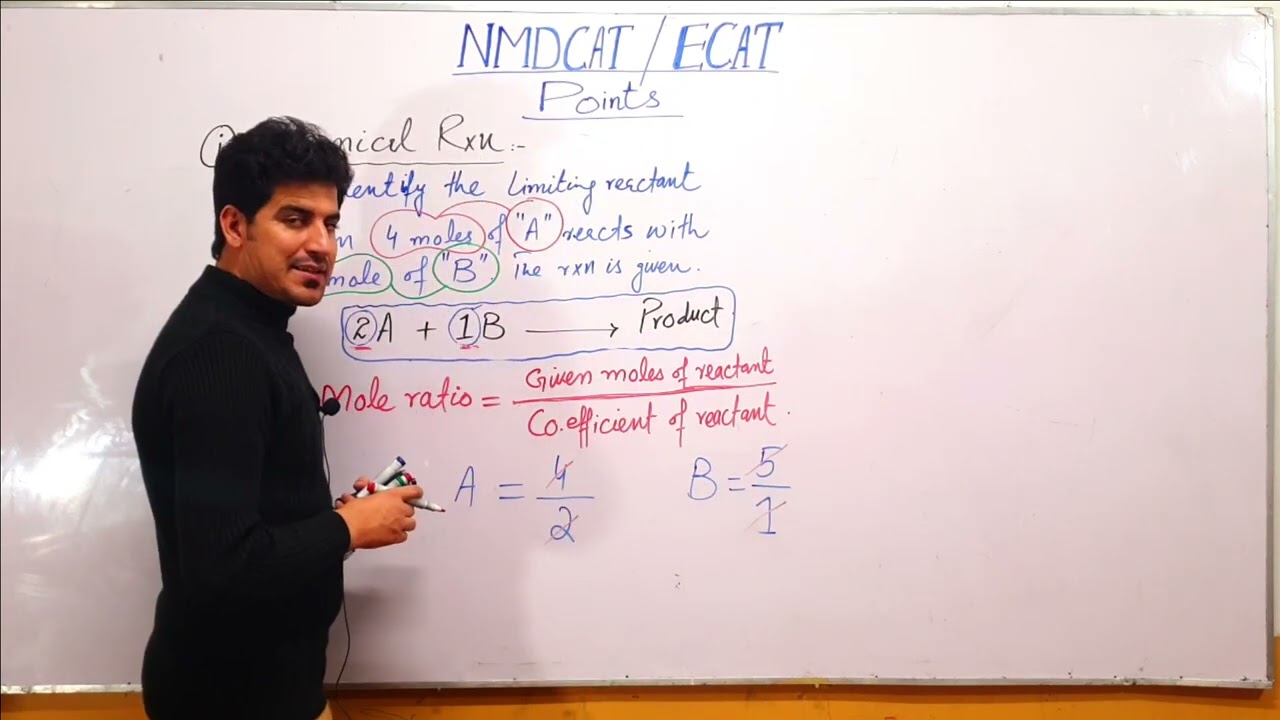 NMDCAT / ECAT
Points
(i mical Rxn :-
entify the limiting reactant
n 4 moles of "A" reacts with
mole of "B". The rxn is given.
2A + 1B ⟶ Product
Mole ratio = Given moles of reactant / Co.efficient of reactant.
A = 4/2 B = 5/1